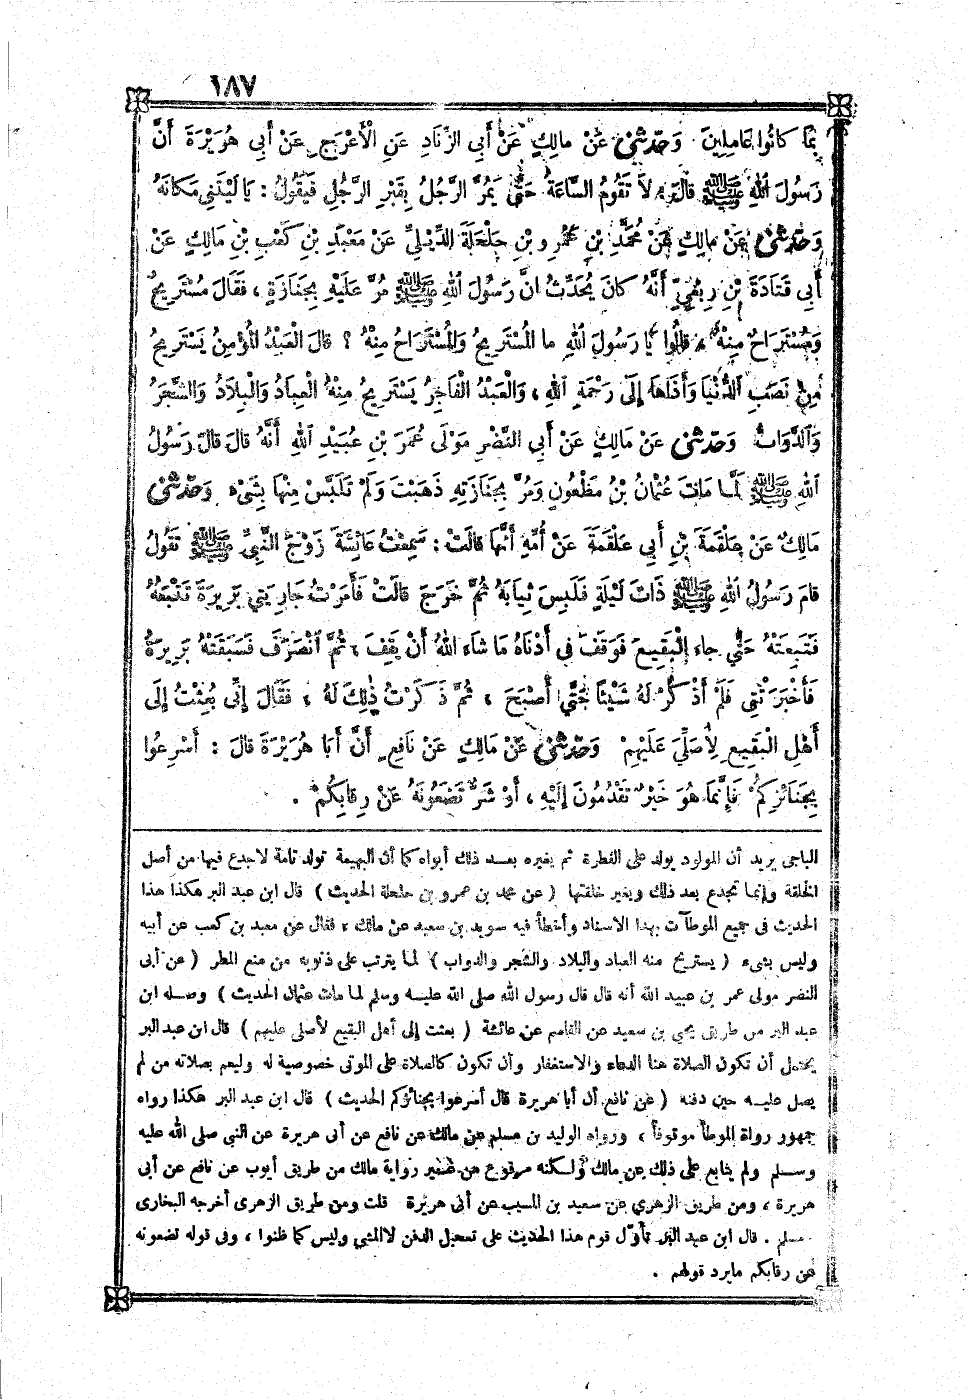 ١٨٧
بِمَا كَانُوا عَامِلِينَ وَحَدَّثَنِى عَنْ مَالِكٍ عَنْ أَبِي الزِّنَادِ عَنِ الْأَعْرَجِ عَنْ أَبِي هُرَيْرَةَ أَنَّ
رَسُولَ اللهِ ﷺ قَالَ لَا تَقُومُ السَّاعَةُ حَتَّى يَمُرَّ الرَّجُلُ بِقَبْرِ الرَّجُلِ فَيَقُولُ : يَا لَيْتَنِي مَكَانَهُ
وَحَدَّثَنِى عَنْ مَالِكٍ عَنْ مُحَمَّدِ بْنِ عَمْرِو بْنِ حَلْحَلَةَ الدِّيْلِيِّ عَنْ مَعْبَدِ بْنِ كَعْبِ بْنِ مَالِكٍ عَنْ
أَبِي قَتَادَةَ بْنِ رِبْعِيٍّ أَنَّهُ كَانَ يُحَدِّثُ انَّ رَسُولَ اللهِ ﷺ مُرَّ عَلَيْهِ بِجَنَازَةٍ ، فَقَالَ مُسْتَرِيحٌ
وَمُسْتَرَاحٌ مِنْهُ ، قَالُوا يَا رَسُولَ اللهِ ما الْمُسْتَرِيحُ وَالْمُسْتَرَاحُ مِنْهُ ؟ قَالَ الْعَبْدُ الْمُؤْمِنُ يَسْتَرِيحُ
مِنْ نَصَبِ الدُّنْيَا وَأَذَاهَا إِلَى رَحْمَةِ اللهِ ، وَالْعَبْدُ الْفَاجِرُ يَسْتَرِيحُ مِنْهُ الْعِبَادُ وَالْبِلَادُ وَالشَّجَرُ
وَالدَّوَابُّ وَحَدَّثَنِى عَنْ مَالِكٍ عَنْ أَبِي النَّضْرِ مَوْلَى عُمَرَ بْنِ عُبَيْدِ اللهِ أَنَّهُ قَالَ قَالَ رَسُولُ
اللهِ ﷺ لَمَّا مَاتَ عُثْمَانُ بْنُ مَظْعُونٍ وَمُرَّ بِجَنَازَتِهِ ذَهَبْتَ وَلَمْ تَلَبَّسْ مِنْهَا بِشَىْءٍ وَحَدَّثَنِى
مَالِكٌ عَنْ عَلْقَمَةَ بْنِ أَبِي عَلْقَمَةَ عَنْ أُمِّهِ أَنَّهَا قَالَتْ : سَمِعْتُ عَائِشَةَ زَوْجَ النَّبِيِّ ﷺ تَقُولُ
قَامَ رَسُولُ اللهِ ﷺ ذَاتَ لَيْلَةٍ فَلَبِسَ ثِيَابَهُ ثُمَّ خَرَجَ قَالَتْ فَأَمَرْتُ جَارِيَتِي بَرِيرَةَ تَتْبَعُهُ
فَتَبِعَتْهُ حَتَّى جاء الْبَقِيعَ فَوَقَفَ فِى أَدْنَاهُ مَا شَاءَ اللهُ أَنْ يَقِفَ ، ثُمَّ انْصَرَفَ فَسَبَقَتْهُ بَرِيرَةُ
فَأَخْبَرَتْنِي فَلَمْ أَذْكُرْ لَهُ شَيْئًا حَتَّى أَصْبَحَ ، ثُمَّ ذَكَرْتُ ذٰلِكَ لَهُ ، فَقَالَ إِنِّى بُعِثْتُ إِلَى
أَهْلِ الْبَقِيعِ لِأُصَلِّيَ عَلَيْهِمْ وَحَدَّثَنِى عَنْ مَالِكٍ عَنْ نَافِعٍ أَنَّ أَبَا هُرَيْرَةَ قَالَ : أَسْرِعُوا
بِجَنَائِزِكُمْ فَإِنَّمَا هُوَ خَيْرٌ تُقَدِّمُونَ إِلَيْهِ ، أَوْ شَرٌّ تَضَعُونَهُ عَنْ رِقَابِكُمْ .
الباجى يريد أن المولود يولد على الفطرة ثم يغيره بعد ذلك أبواه كما أن البهيمة تولد تامة لا جدع فيها من أصل
الخلقة وإنما تجدع بعد ذلك ويغير خلقتها ( عن محمد بن عمرو بن حلحلة الحديث ) قال ابن عبد البر هكذا هذا
الحديث فى جميع الموطآت بهذا الاسناد وأخطأ فيه سويد بن سعيد عن مالك ، فقال عن معبد بن كعب عن أبيه
وليس بشىء ( يستريح منه العباد والبلاد والشجر والدواب ) لما يترتب على ذنوبه من منع المطر ( عن أبى
النضر مولى عمر بن عبيد الله أنه قال قال رسول الله صلى الله عليه وسلم لما مات عثمان الحديث ) وصله ابن
عبد البر من طريق يحي بن سعيد عن القاسم عن عائشة ( بعثت إلى أهل البقيع لأصلى عليهم ) قال ابن عبد البر
يحتمل أن تكون الصلاة هنا الدعاء والاستغفار وأن تكون كالصلاة على الموتى خصوصية له وليعم بصلاته من لم
يصل عليه حين دفنه ( عن نافع أن أبا هريرة قال أسرعوا بجنائزكم الحديث ) قال ابن عبد البر هكذا رواه
جمهور رواة الموطأ موقوفا ، ورواه الوليد بن مسلم عن مالك عن نافع عن أبى هريرة عن النبى صلى الله عليه
وسلم ولم يتابع على ذلك عن مالك ولكنه مرفوع من غير رواية مالك من طريق أيوب عن نافع عن أبى
هريرة ، ومن طريق الزهري عن سعيد بن المسيب عن أبى هريرة قلت ومن طريق الزهرى أخرجه البخارى
مسلم . قال ابن عبد البر تأول قوم هذا الحديث على تعجيل الدفن لا المشى وليس كما ظنوا ، وفى قوله تضعونه
عن رقابكم مايرد قولهم .